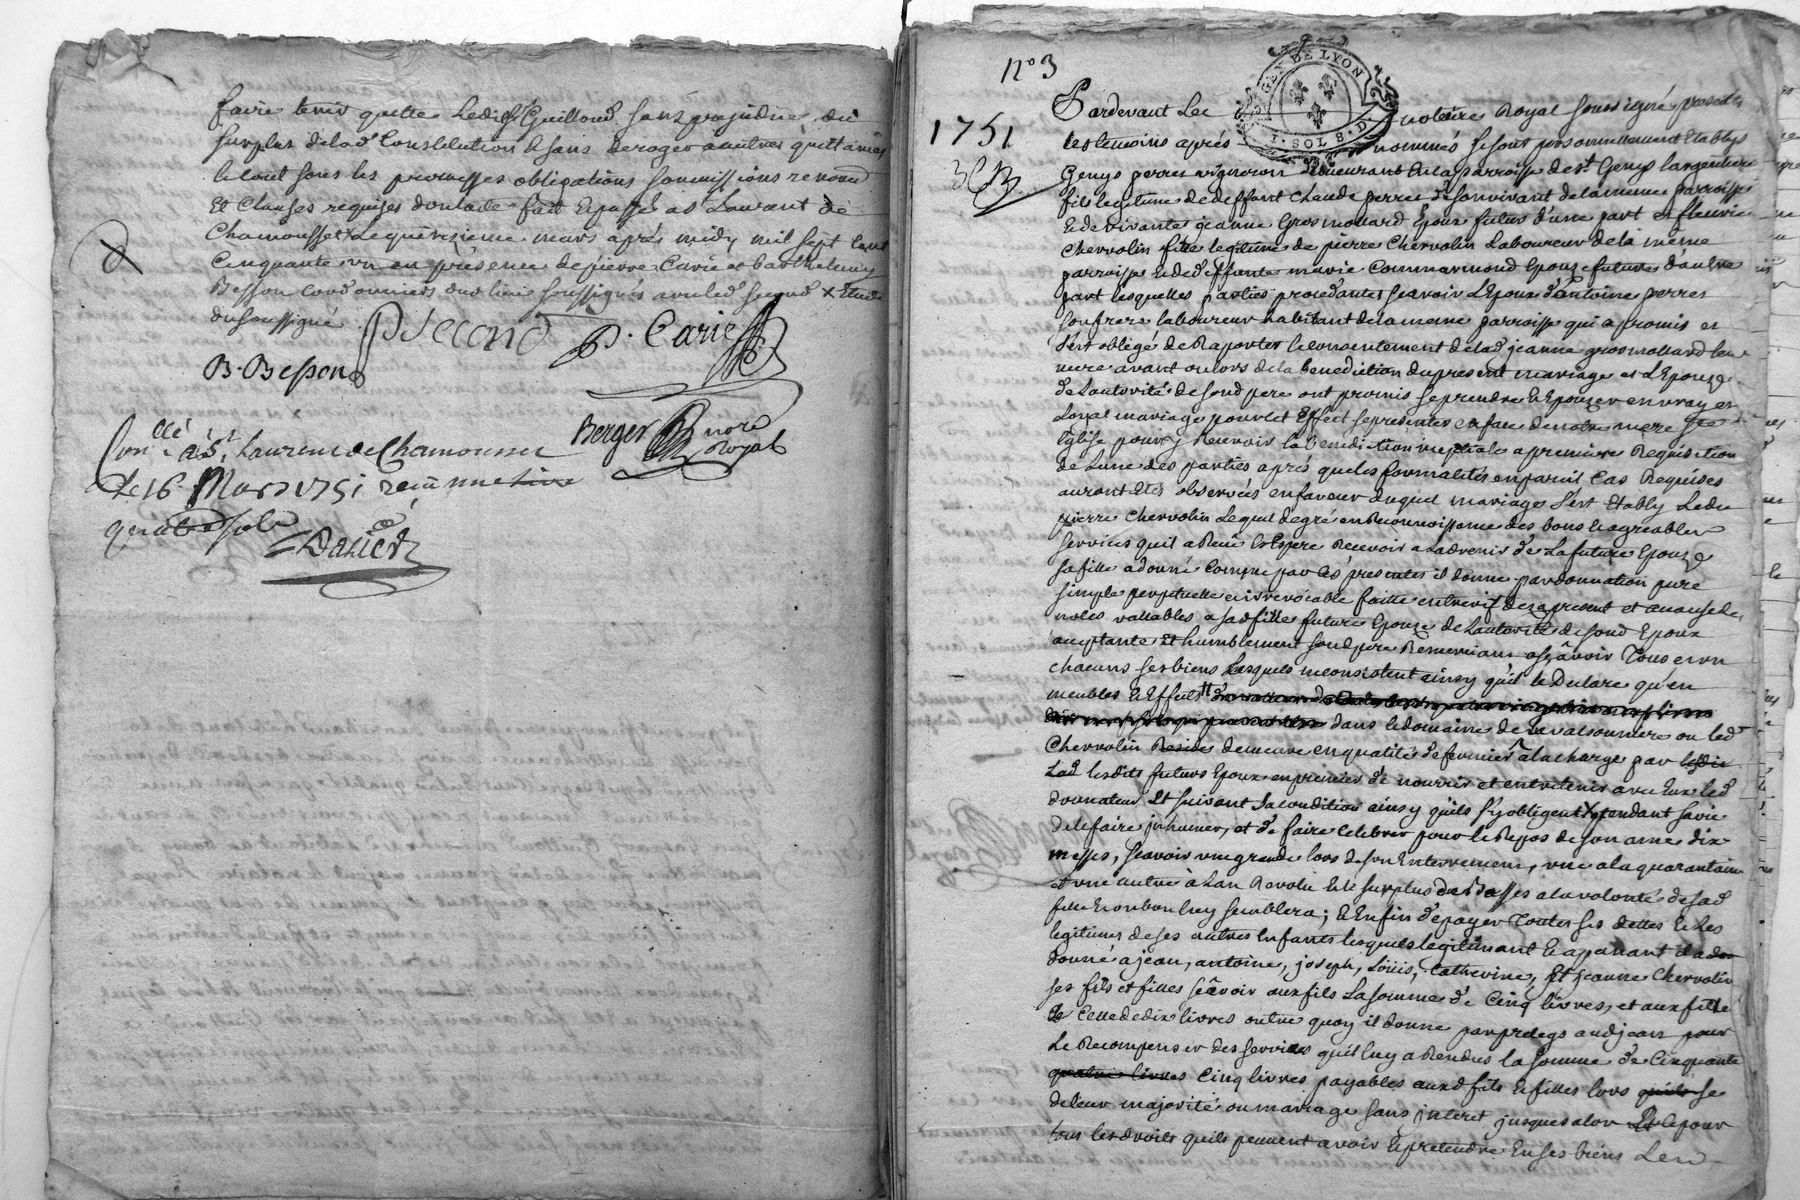 faire tenir quitte Ledit Guilloud sans prejudice du
surplus de lad. Constitution & sans deroger a autres quittances
le tout sous les promesses obligations soumissions renon
Et Clauses requises dont acte fait & passé a St Laurent de
Chamousset Le quinzieme mars apres midy mil sept cent
Cinquante un en presence de pierre Carié et barthelemy
Besson Cordonniers dud lieu soussignés avec led second
du soussigné
P Second P. Carié
B. Besson
Berger nore Royal
Con.llé a St. Laurent de Chamousset
Le 16 Mars 1751 recu une livre
quatre sols
Dalier
n° 3
GEN DE LYON
SOLS. D
1751
Pardevant Le notaire Royal soussigné presents
les temoins aprés nommés se sont personnellement Etablys
Genys perret vigneron demeurant En la parroisse de st Genys Largentiere
fils legitime de deffunt Claude perret de son vivant de la meme parroisse
& de vivante jeanne Grosmollard Epoux futur d'une part et fleurie
Chervolin fille legitime de pierre Chervolin Laboureur de la même
parroisse & de deffunte marie Commarmond Epouze future d'autre
part lesquelles parties procedantes sçavoir L'Epoux d'antoine perret
son frere laboureur habitant de la meme parroisse qui a promis et
s'est obligé de Raporter le consentement de lad jeanne grosmollard leur
mere avant ou lors de la benediction du present mariage et L'Epouze
de Lautorité de sond pere ont promis se prendre & Epouzer en vray et
Loyal mariage pour cet Effect se presenter en face de notre mere Ste
Eglise pour y Recevoir la benediction nuptiale a premiere Requisition
de Lune des parties aprés que les formalités en pareil Cas Requises
auront eté observées en faveur duquel mariage s'est Etably Led
pierre Chervolin Lequel de gré en Reconnoissance des bons & agreables
services quil a Receu & Espere Recevoir a Ladvenir de La future Epouze
sa fille a donné comme par les présentes il donne par donnation pure
simple perpetuelle et irrevocable faitte entrevif dez a present et a cause de
noces vallables a sad fille future Epouze de Lautorité de sond Epoux
acceptante Et humblement sond pere Remerciant asçavoir Tous et un
chacuns ses biens Lesquels ne consistent ainsy quil le Declare qu'en
meubles & Effects
dans le domaine de la valsonniere ou led
Chervolin Reside demeure en qualité de fermier a la charge par
Lad lesdits futurs Epoux en premier de nourrir et entretenir avec Eux led
donnateur Et suivant sa condition ainsy quils s'y obligent pendant sa vie
de le faire jnhumer, et de faire celebrer pour le Repos de son ame dix
messes, sçavoir une grande lors de son Enterrement, une a la quarantaine
et une autre à Lan Revolu & le surplus de basses a la volonté de sad
fille & ou bon luy semblera; & Enfin d'epayer Toutes ses dettes & Les
legitimes de ses autres Enfants lesquels legitimant & apanant il a
donné a jean, antoine, joseph, Loüis, Catherine, Et jeanne Chervolin
ses fils et filles sçavoir aux fils La somme de Cinq livres, et aux filles
Celle de dix livres outre quoy il donne par prelegs audjean pour
Le Recompenser des services quil luy a Rendus la somme de Cinquante
quatre livres Cinq livres payables auxd fils & filles lors quils se
de leur majorité ou mariage sans jnteret jusques alors Et pour
tous les droits quils peuvent avoir & pretendre En ses biens